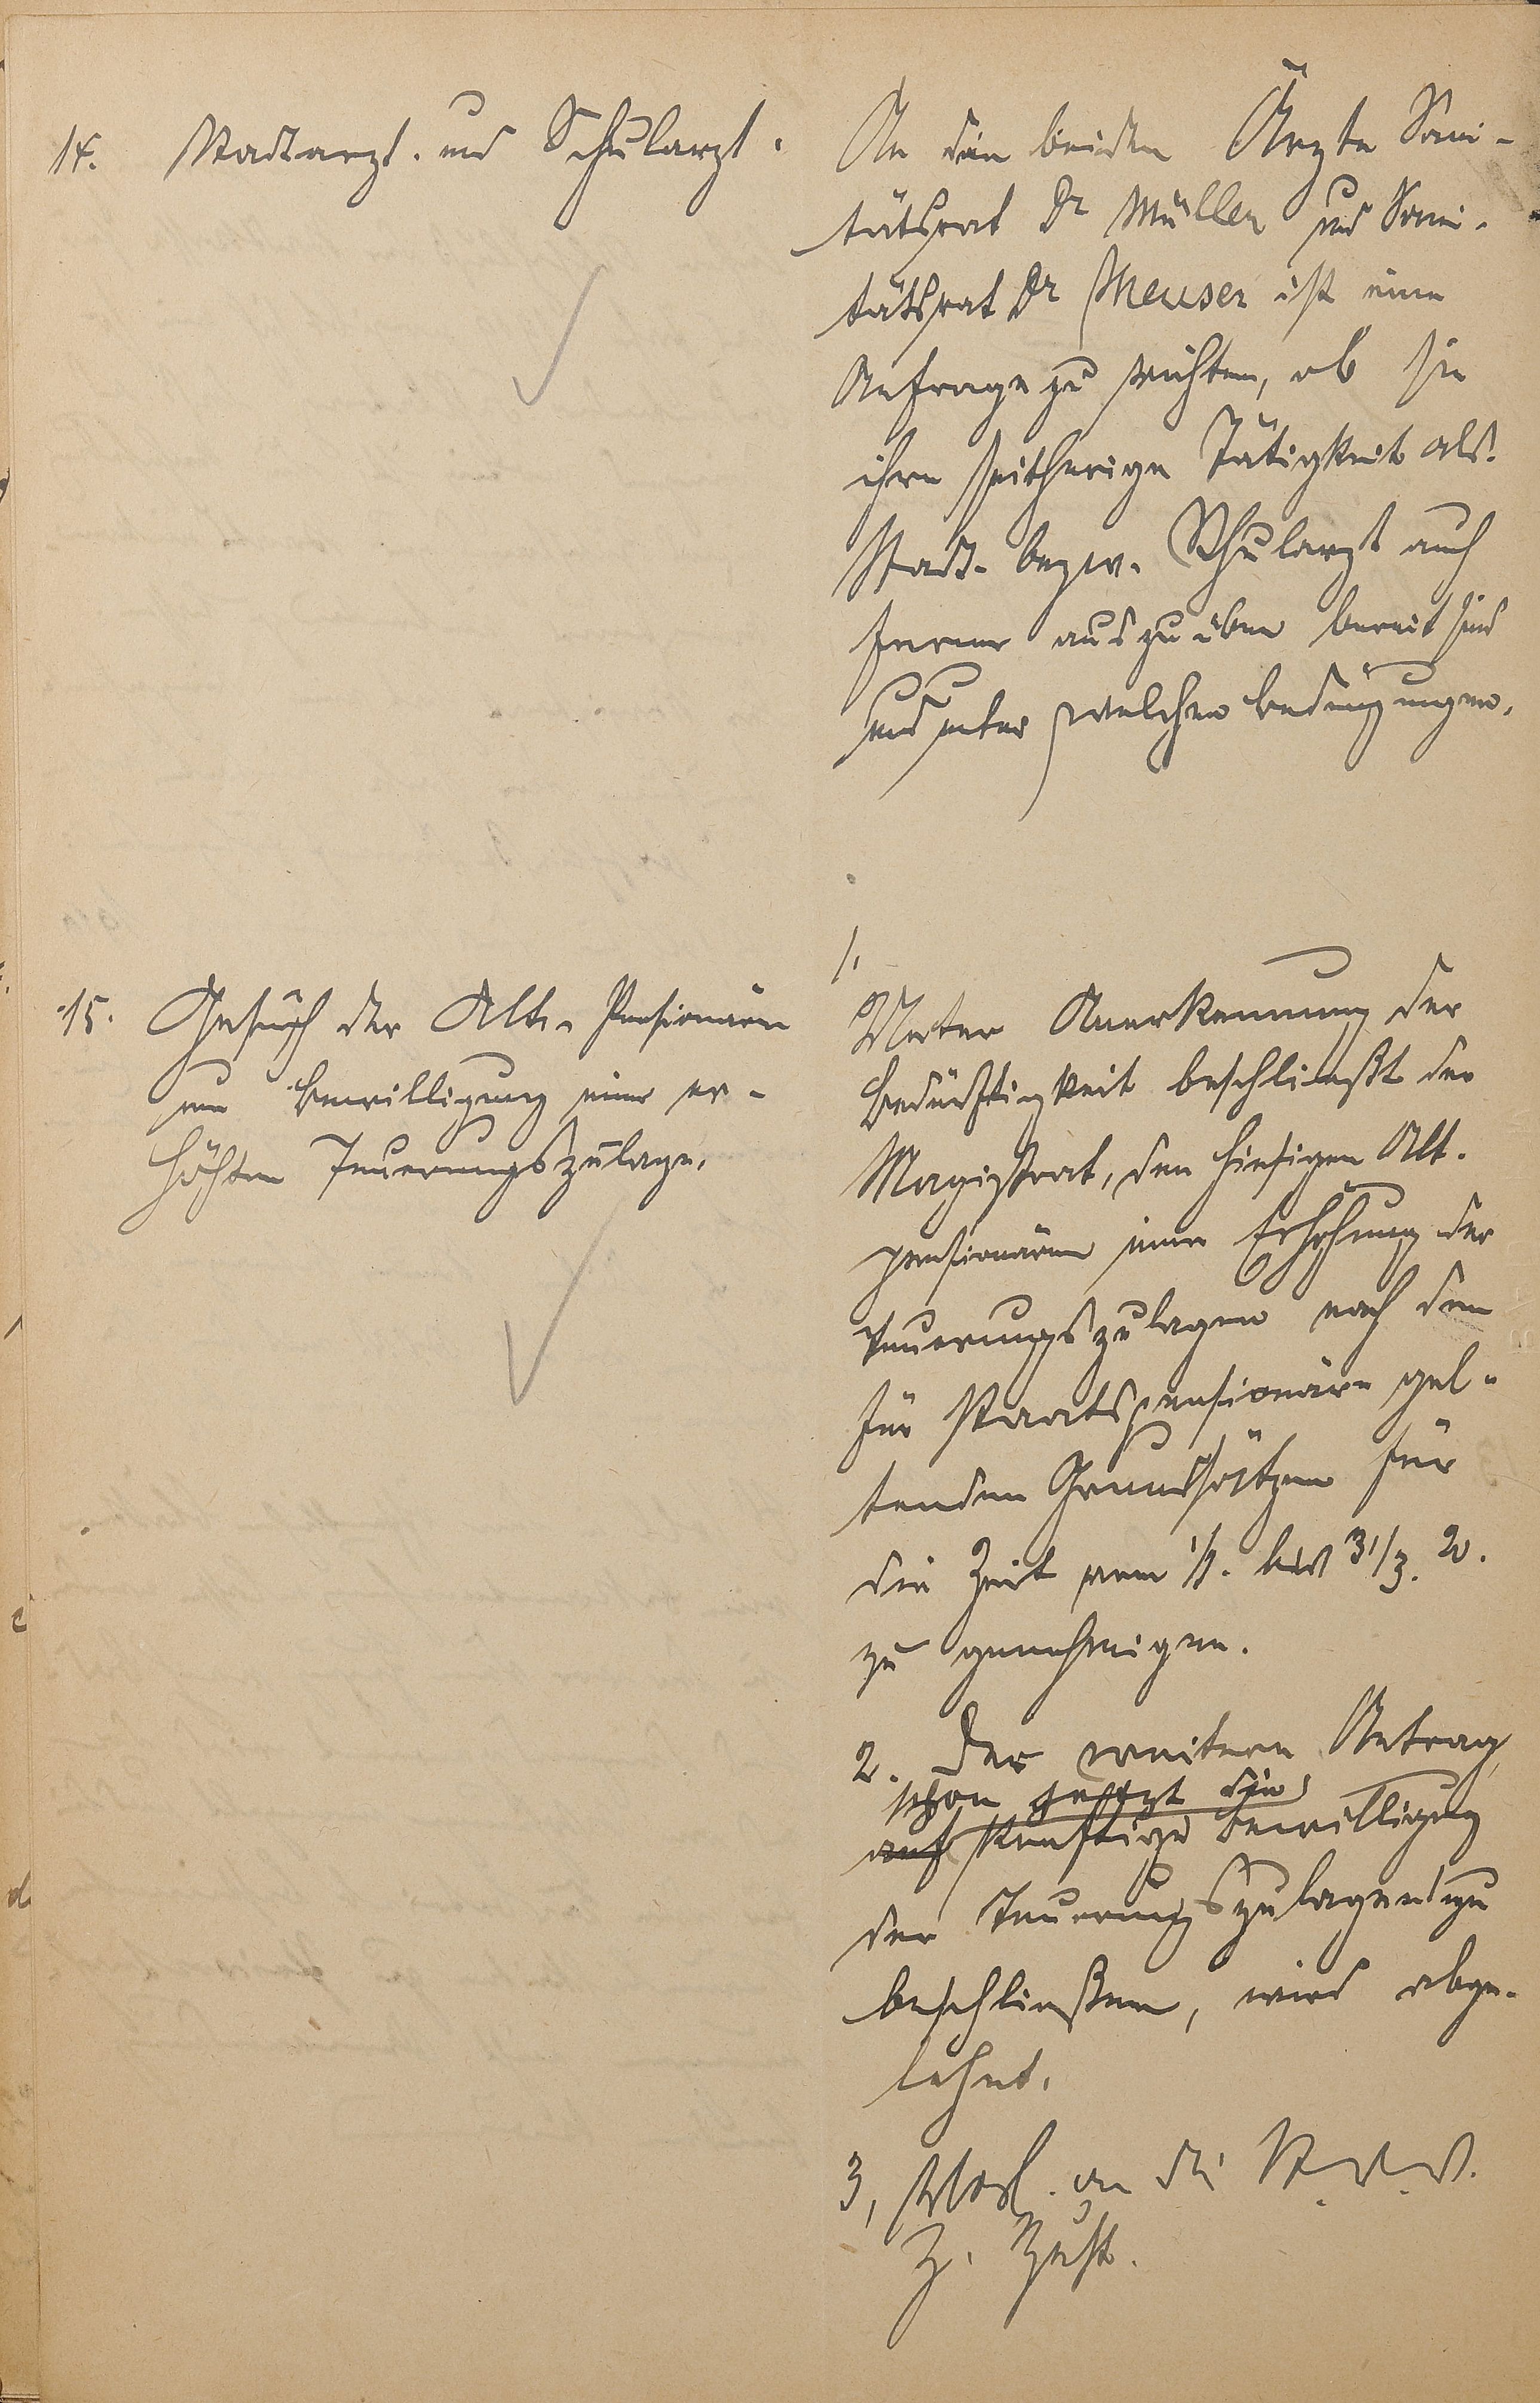 14. Stadtarzt. und Schularzt.
An die beiden Ärzte Sani-
tätsrat Dr Müller und Sani-
tätsrat Dr Meuser ist eine
Anfrage zu richten, ob sie
ihre seitherige Tätigkeit als
Stadt- bezw. Schularzt auch
ferner auszuüben bereit sind
und unter welchen Bedingungen.
15. Gesuch der Alt-Pensionäre
um Bewilligung einer er-
höhten Teuerungszulage.
1.
Unter Anerkennung der
Bedürftigkeit beschließt der
Magistrat, den hiesigen Alt-
pensionären eine Erhöhung der
Teuerungszulagen nach den
für Staatspensionäre gel-
tenden Grundsätzen für
die Zeit vom 1/1. bis 31/3. 20.
zu genehmigen.
2. Der weitere Antrag,
schon jetzt die
auf künftige Bewilligung
der Teuerungszulagen zu
beschließen, wird abge-
lehnt.
3, Vorl. an die St. V. V.
z. Zust.